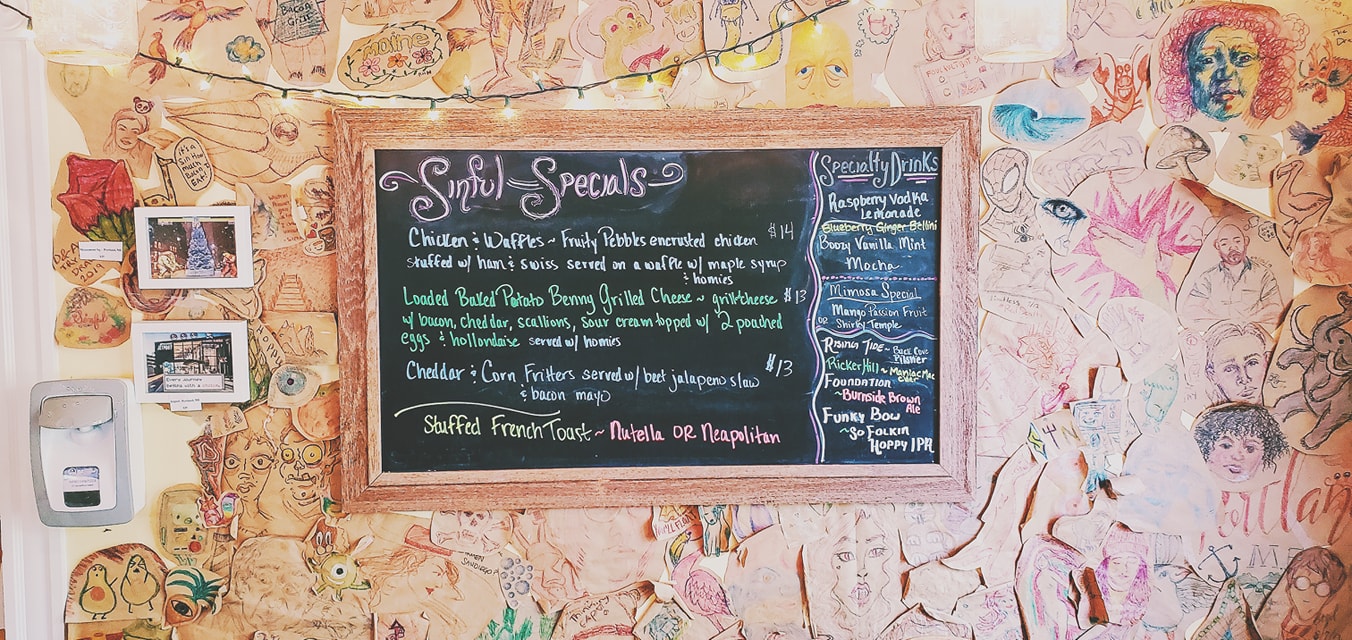 Bacon
Grill
MAINE
It's a
Sin How
much
Bacon I
EAT.
Sinful Specials
Chicken & Waffles ~ Fruity Pebbles encrusted chicken $14
stuffed w/ ham & swiss served on a waffle w/ maple syrup
& homies
Loaded Baked Potato Benny Grilled Cheese ~ grilled cheese $13
w/ bacon, cheddar, scallions, sour cream topped w/ 2 poached
eggs & hollondaise served w/ homies
Cheddar & Corn Fritters served w/ beet jalapeno slaw $13
& bacon mayo
Stuffed French Toast ~ Nutella OR Neapolitan
Specialty Drinks
Raspberry Vodka
Lemonade
Blueberry Ginger Bellini
Boozy Vanilla Mint
Mocha
Mimosa Special
Mango Passion Fruit
OR Shirley Temple
Rising Tide ~ Back Cove
Pilsner
Ricker Hill ~ Maniac Mac
cider
Foundation
~ Burnside Brown
Ale
Funky Bow
~ So Folkin
Hoppy IPA
Every journey